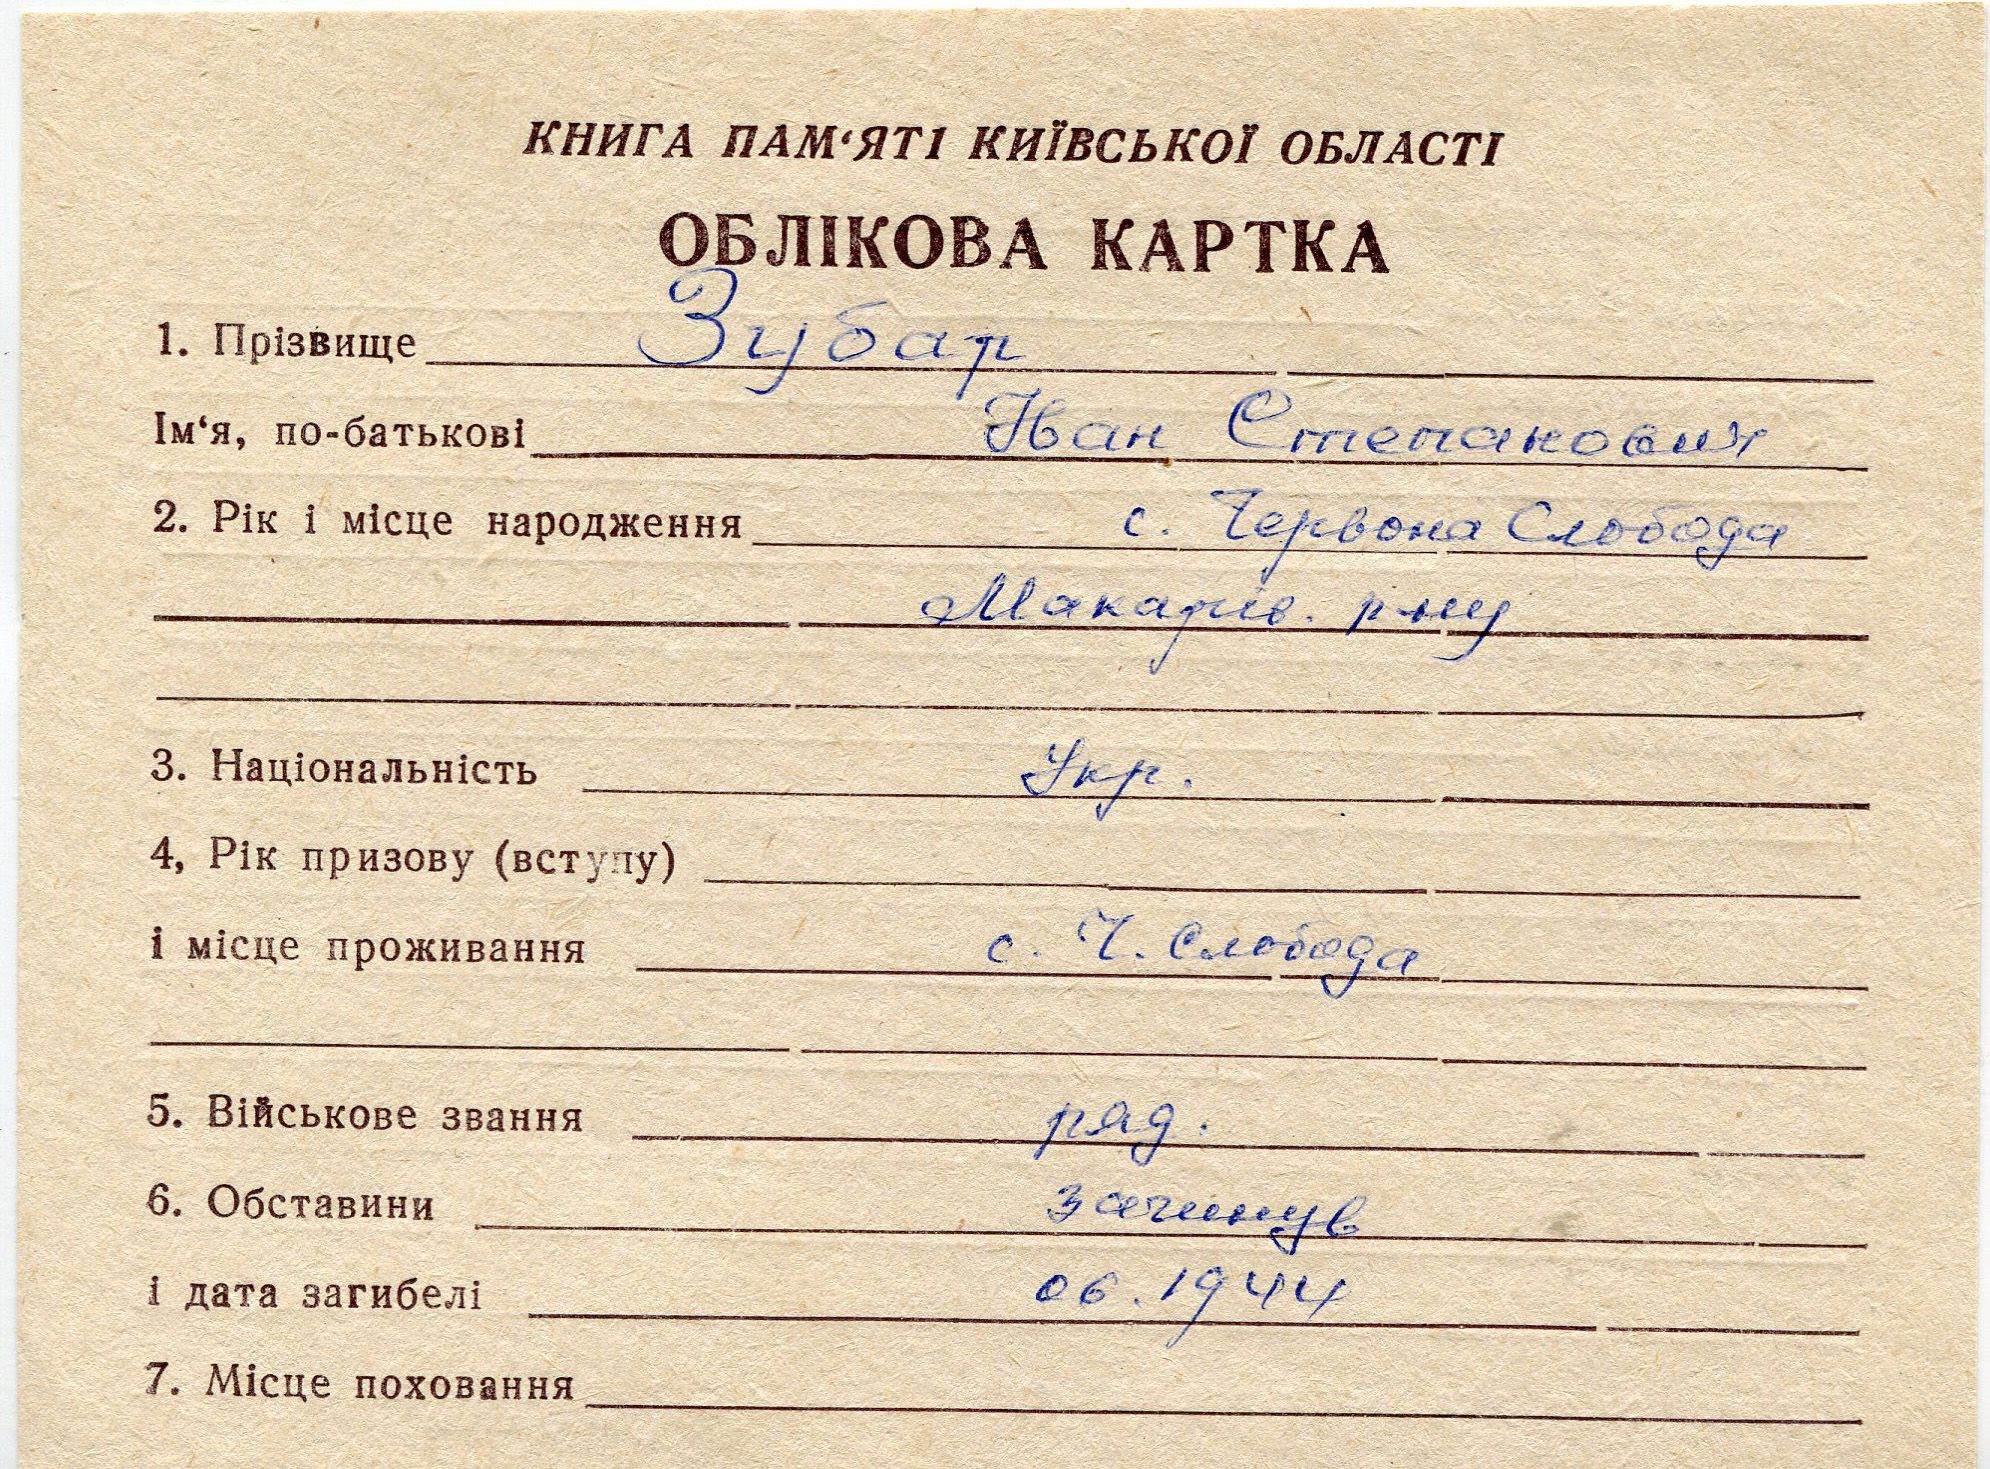 КНИГА ПАМ‘ЯТІ КИЇВСЬКОЇ ОБЛАСТІ
ОБЛІКОВА КАРТКА
1. Прізвище Зубар
Ім‘я, по-батькові Іван Степанович
2. Рік і місце народження с. Червона Слобода
Макарів. р-ну
3. Національність Укр.
4, Рік призову (вступу)
і місце проживання с. Ч. Слобода
5. Військове звання ряд.
6. Обставини загинув
і дата загибелі 06.1944
7. Місце поховання